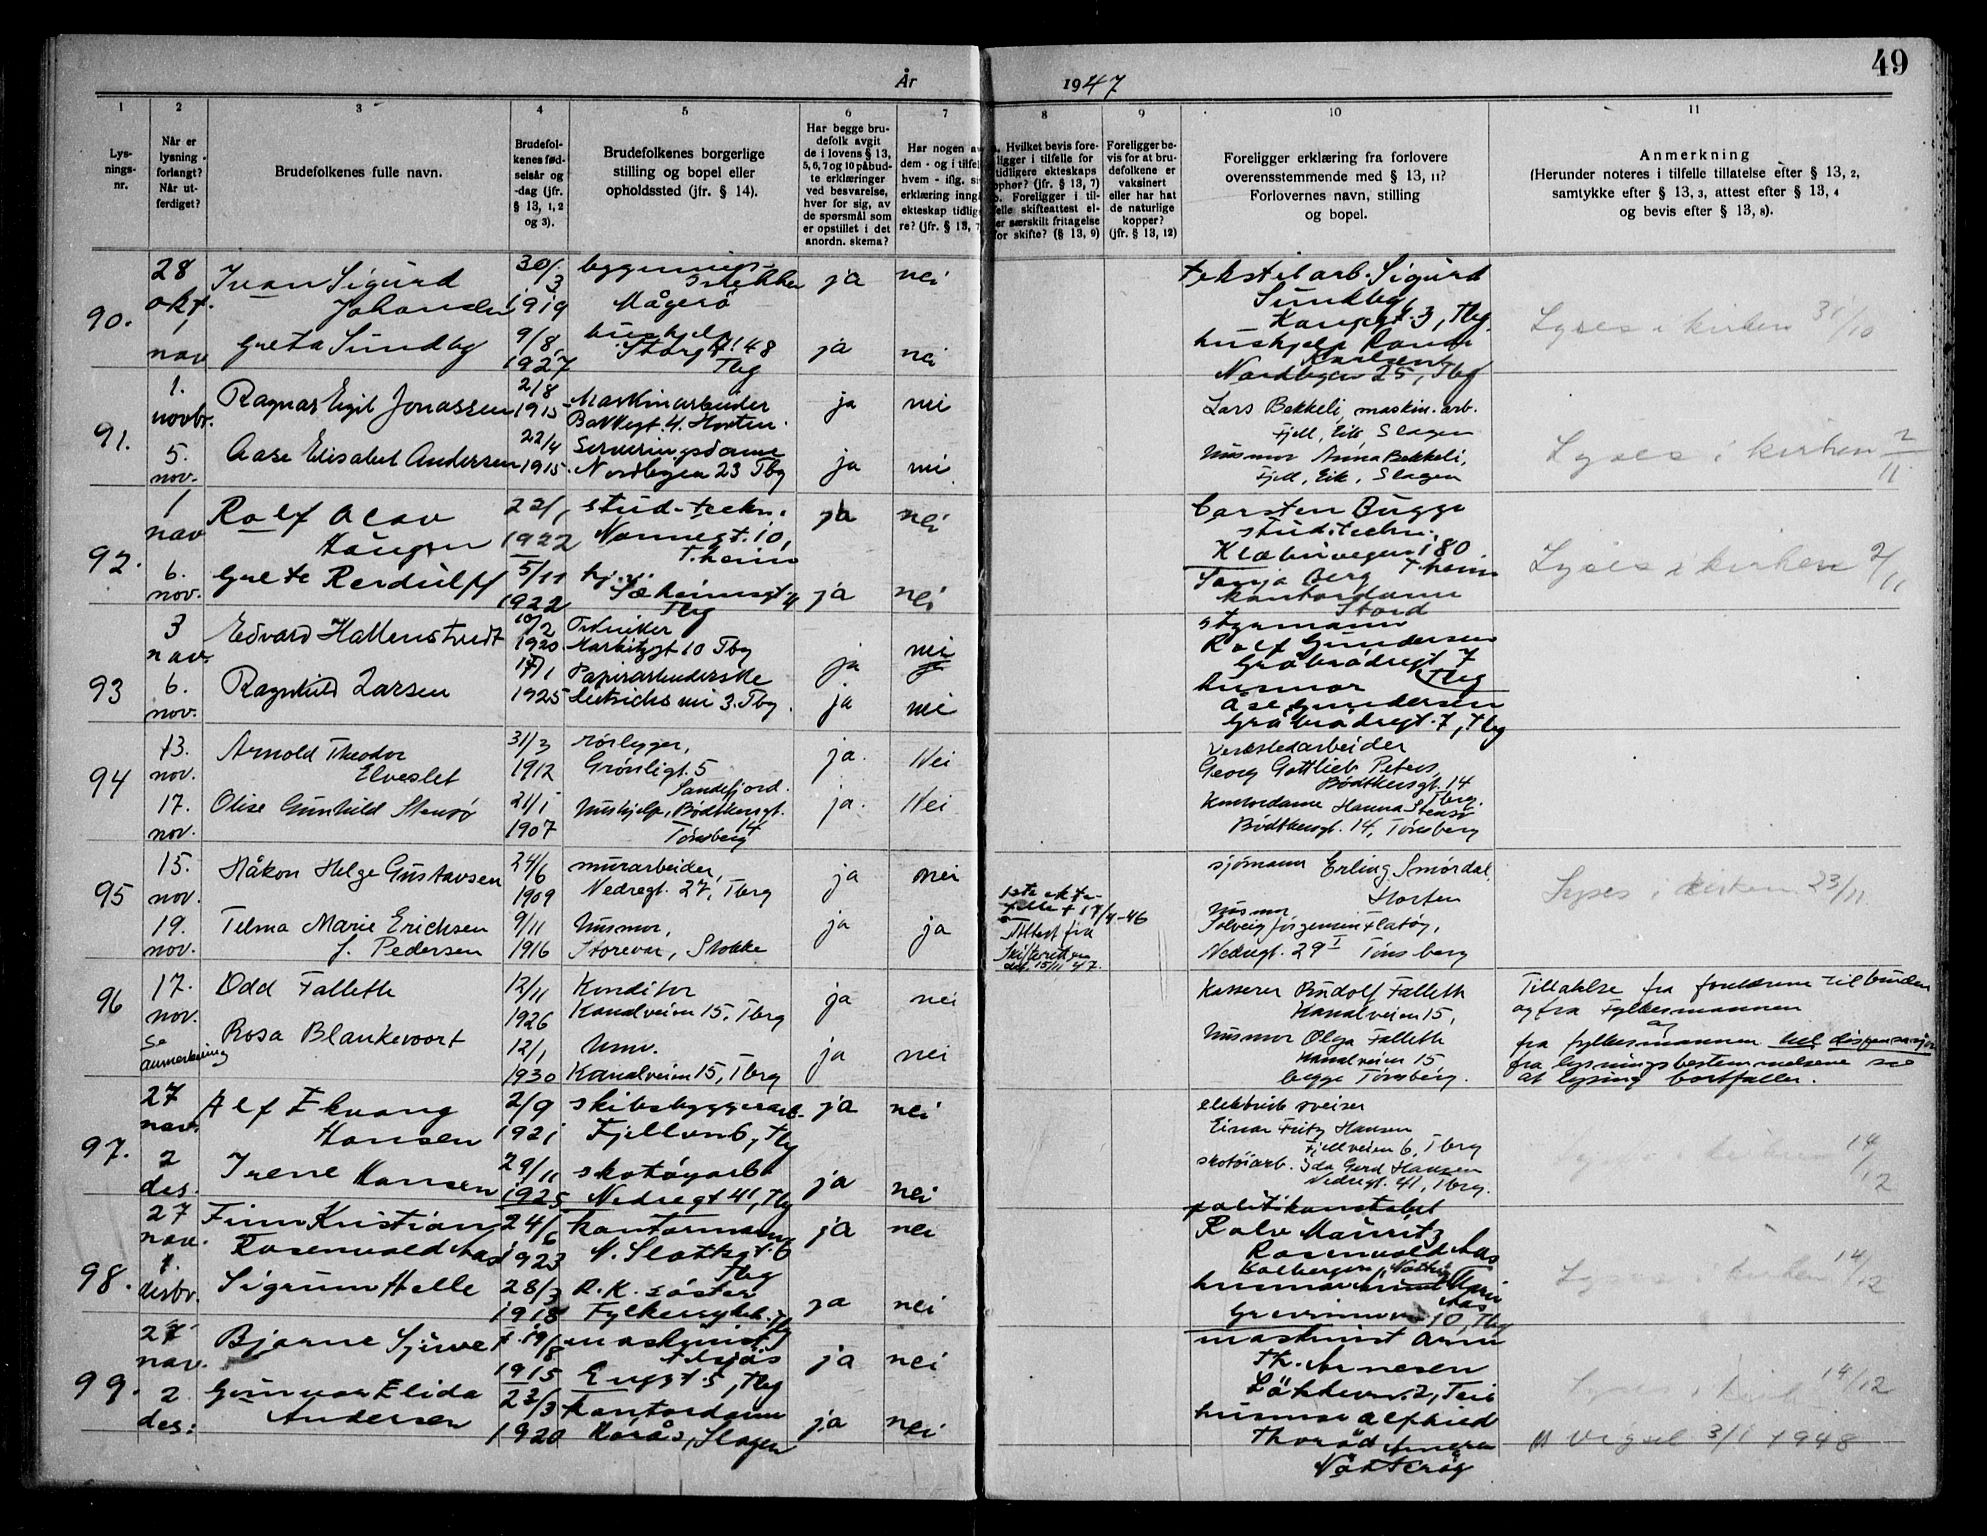 49
År 1947
1
Lys-
nings-
nr.
2
Når er
lysning
forlangt?
Når ut-
ferdiget?
3
Brudefolkenes fulle navn.
4
Brudefol-
kenes fød-
selsår og
-dag (jfr.
§ 13, 1, 2
og 3).
5
Brudefolkenes borgerlige
stilling og bopel eller
opholdssted (jfr. § 14).
6
Har begge bru-
defolk avgit
de i lovens § 13,
5, 6, 7 og 10 påbud-
te erklæringer
ved besvarelse,
hver for sig, av
de spørsmål som
er opstillet i det
anordn. skema?
7
Har nogen av
dem - og i tilfel
hvem - iflg. si
erklæring inng
ekteskap tidlig
re? (jfr. § 13, 7
8
Hvilket bevis fore-
ligger i tilfelle for
tidligere ekteskaps
ophør? (jfr. § 13, 7)
b. Foreligger i til-
felle skifteattest el-
ler særskilt fritagelse
for skifte? (§ 13, 9)
9
Foreligger be-
vis for at bru-
defolkene er
vaksinert
eller har hat
de naturlige
kopper?
(jfr. § 13, 12)
10
Foreligger erklæring fra forlovere
overensstemmende med § 13, 11?
Forlovernes navn, stilling
og bopel.
11
Anmerkning
(Herunder noteres i tilfelle tillatelse efter § 13, 2,
samtykke efter § 13, 3, attest efter § 13, 4
og bevis efter § 13, 8).
90.
28
okt.
1
nov
Ivan Sigurd
Johansen
30/3
1919
Mågerø
ja
nei
Greta Sundby
9/8
1927
hushjelp
Storgt. 48
Tbg
ja
nei
tekstilarb. Sigurd
Sundby
Kongegt. 3, Tbg.
hushjelp
Karlsen
Nordbyen 25, Tbg
Lyses i kirken 31/10
91.
1.
novbr.
5.
nov.
Ragnar Eigil Jonassen
2/8
1915
Maskinarbeider
Bakkegt. 4. Horten.
ja
nei
Aase Elisabet Andersen
22/4
1915.
Serveringsdame
Nordbyen 23 Tbg
ja
nei
Lars Bekkeli, maskin. arb.
Fjell, Eik, Slagen
Husmor Anna Bekkeli,
Fjell, Eik, Slagen
Lyses i kirken 2/11
92.
1
nov
6.
nov.
Rolf Olav
Haugen
22/1
1922
stud. techn.
Nonnegt. 10,
T.heim
ja
nei
Grete Rerdulff
5/11
1922
hj.v.
Sæheimsgt. 4
Tbg
ja
nei
Carsten Bugge
stud. techn.
Klæbuvegen 180
T.heim
Berg
kontordame
Stord
Lyses i kirken 2/11
93
3
nov.
6.
nov.
Edvard Hallenstvedt
10/2
1920.
Tekniker
10 Tbg
ja
nei
Ragnhild Larsen
17/1
1925
Papirarbeiderske
3. Tbg.
ja
nei
styrmann
Rolf Gundersen
Gråbrødregt 7
Tbg
husmor
Åse Gundersen
Gråbrødregt. 7, Tbg
94
13.
nov.
17.
nov.
Arnold Theodor
Elveslet
31/3
1912
rørlegger,
Grønligt. 5
Sandefjord.
ja.
Nei
Olise Gunhild Stensø
21/1
1907
Hushjelp, Bødtkersgt.
14
Tønsberg
ja.
Nei
Verkstedarbeider
Georg Gottlieb Peters,
Bødtkersgt. 14
Tbrg.
Kontordame Hanna Stensø
Bødtkersgt. 14, Tønsberg
95
15.
nov.
19.
nov.
Håkon Helge Gustavsen
24/6
1909
murarbeider,
Nedregt. 27, Tbrg
ja
nei
Telma Marie Ericksen
f. Pedersen
9/11
1916
Husmor,
Storevar, Stokke
ja
ja
felle † 17/4-46
Attest fra
Skifteretten
15/11 47.
sjømann Erling Smørdal,
Horten
Husmor
Solveig Jørgensen Flatøy,
Nedregt. 29 I Tønsberg
Lyses i kirken 23/11
96
17.
nov.
Se
anmerkning
Odd Falleth
12/11
1926
Konditor
Kanalveien 15, Tbrg
ja
nei
Rosa Blankevoort
12/1
1930
Husm.
Kanalveien 15, Tbrg
ja
nei
Kasserer Rudolf Falleth
Kanalveien 15,
Husmor Olga Falleth
Kanalveien 15
begge Tønsberg.
Tillatelse fra foreldrene til bruden
og fra Fylkesmannen
og
fra fylkesmannen hel dispensasjon
fra lysningsbestemmelsene so
at lysing bortfaller.
97.
27
nov.
2
des.
Alf Ekvang
Hansen
2/9
1921
skibsbyggerarb.
Fjellvn 6, Tbg
ja
nei
Irene Hansen
29/11
1925
skotøyarb.
Nedregt 41, Tbg
ja
nei
elektrisk sveiser
Einar Fritz Hansen
Fjellveien 6, Tbrg
skotøiarb. Ida Gerd Hansen
Nedregt. 41, Tbrg.
Lyses i kirken 14/12
98.
27
nov.
1.
desbr.
Finn Kristian
Rosenvold Aas
24/6
1923
kontormann
N. Slottsgt. 6
Tbg
ja
nei
Sigrun Helle
28/3
1918
R. K. søster
Fylkessykeh.
ja
nei
politikonstabel
Rolv Mauritz
Rosenvold Aas
husmor
Aas
10, Tbg
Lyses i kirken 14/12
99.
27
nov.
2
des.
Bjarne Sjuve
f. 19/8
1915
maskinist
tilsjøs
Engst. 5, Tbg
ja
nei
Gunvor Elida
Andersen
23/3
1920
kontordame
Korås, Slagen
ja
nei
maskinist Arne
Th. Arnesen
husmor Alfhild
Thorød Arnesen
Nøtterøy
Lyses i kirken 14/12
vigsel 3/1 1948